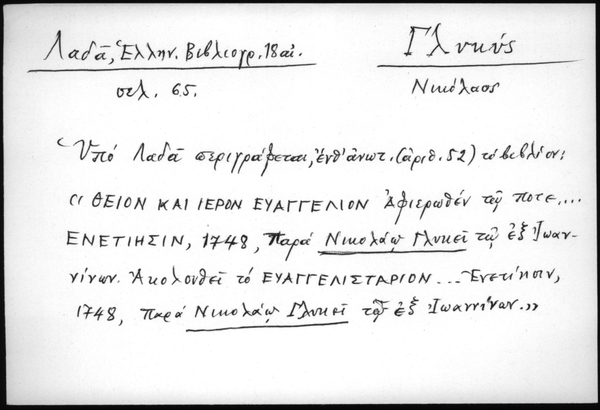 Λαδᾶ, Ἑλλην. Βιβλιογρ. 18 αἰ.
Γλυκύς
σελ. 65.
Νικόλαος
Ὑπό Λαδᾶ περιγράφεται, ἐνθ' ἀνωτ. (ἀριθ. 52) τό βιβλίον:
« ΘΕΙΟΝ ΚΑΙ ΙΕΡΟΝ ΕΥΑΓΓΕΛΙΟΝ Ἀφιερωθέν τῷ ποτε....
ΕΝΕΤΙΗΣΙΝ, 1748, Παρά Νικολάῳ Γλυκεῖ τῷ ἐξ Ἰωαν-
νίνων. Ἀκολουθεῖ τό ΕΥΑΓΓΕΛΙΣΤΑΡΙΟΝ... Ἐνετίησιν,
1748, παρά Νικολάῳ Γλυκεῖ τῷ ἐξ Ἰωαννίνων.»